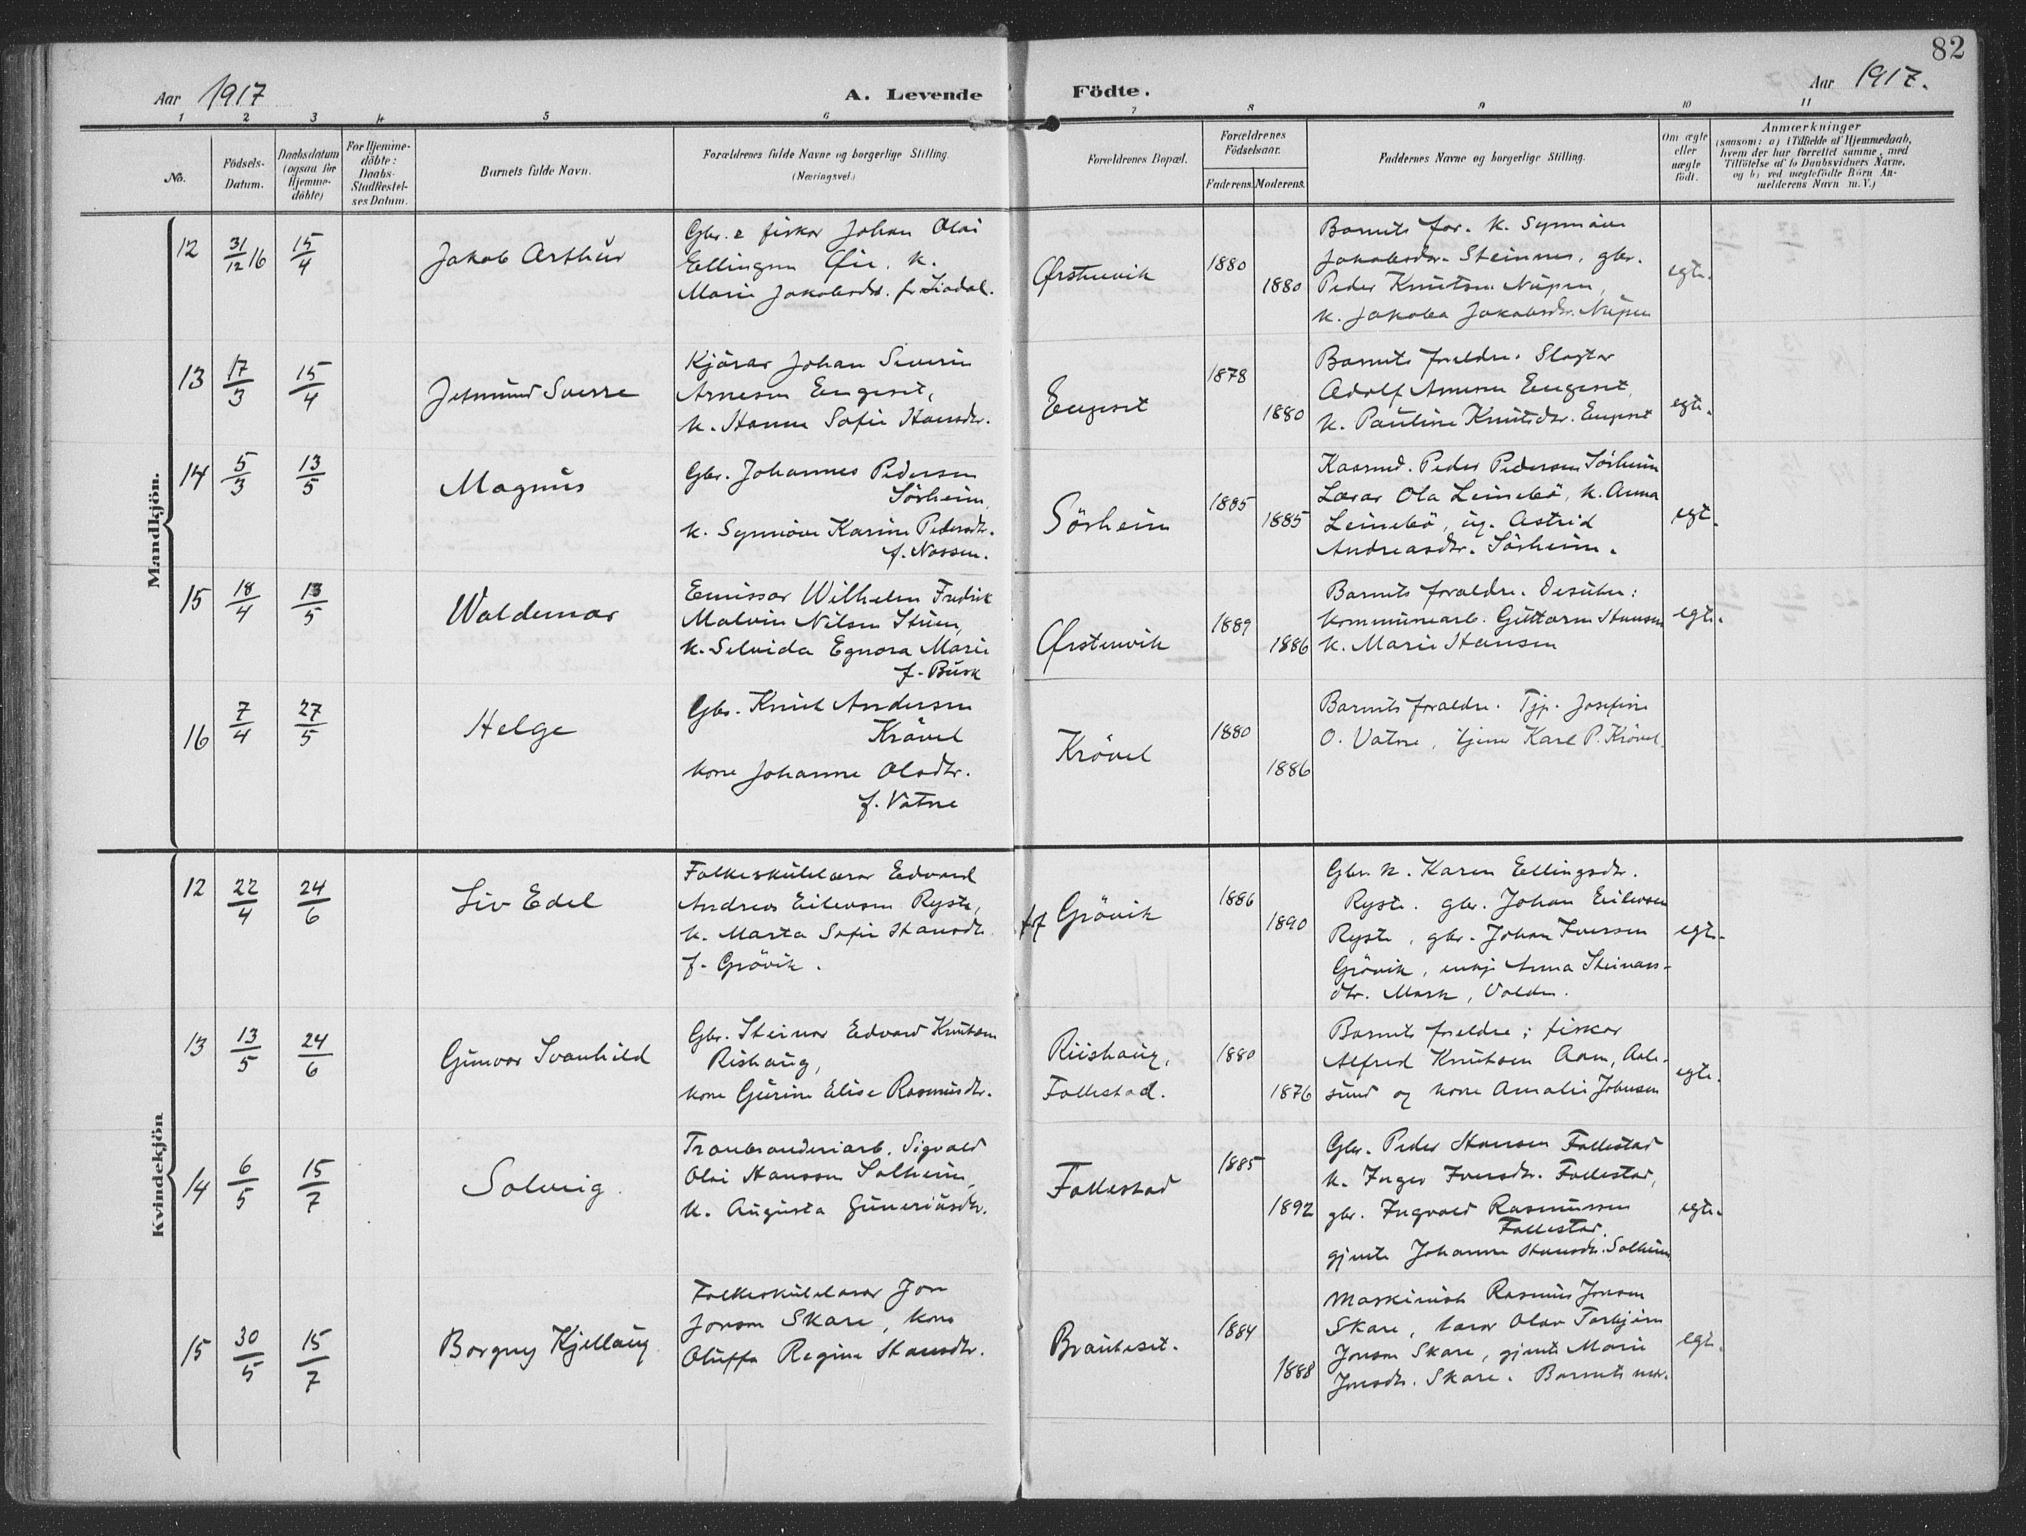 82
Aar 1917
A. Levende Födte.
Aar 1917.
1 2 3 4 5 6 7 8 9 10 11
No.
Födsels-
Datum.
Daabsdatum
(ogsaa for
Hjemme-
döbte)
For Hjemme-
döbte:
Daabs-
Stadfæstel-
ses Datum.
Barnets fulde Navn.
Forældrenes fulde Navne og borgerlige Stilling.
(Næringsvei.)
Forældrenes Bopæl.
Forældrenes
Födselsaar.
Faderens. Moderens.
Faddernes Navne og borgerlige Stilling.
Om ægte
eller
uægte
födt.
Anmærkninger
(saasom: a) i Tilfælde af Hjemmedaab,
hvem der har forrettet samme, med
Tilföielse af to Daabsvidners Navne,
og b) ved uegtefödte Börn An-
melderens Navn m. V.)
Mandkjön.
12
31/12 16
15/4
Jakob Arthur
Gbr. & fisker Johan Olai
Ellingsen Øie, k.
Marie Jakobsdtr. f. Liadal.
Ørstenvik
1880
1880
Barnets far. k. Synnöve
Jakobsdtr. Steinnes, gbr.
Peder Knutsen Nupen,
k. Jakoba Jakobsdtr. Nupen
egte.
13
17/3
15/4
Jetmund Sverre
Kjörar Johan Severin
Arnesen Engeset,
k. Hanna Sofie Hansdtr.
Engeset
1878
1880
Barnets foreldre. Slagter
Adolf Arnesen Engeset,
k. Pauline Knutsdtr. Engeset
egte.
14
5/3
13/5
Magnus
Gbr. Johannes Pedersen
Sörheim,
k. Synnöve Karine Pedersdtr.
f. Nossen.
Sörheim
1885
1885
Kaarmd. Peder Pedersen Sörheim
Lærar Ola Leinebö, k. Anna
Leinebö, ug. Astrid
Andreasdtr. Sörheim.
egt.
15
18/4
13/5
Waldemar
Emissær Wilhelm Fredrik
Malvin Nilsen Stuen,
k. Selvida Egnora Marie
f. Busk
Ørstenvik
1889
1886
Barnets foraldre. Desuten:
kommunearb. Guttorm Hansen
k. Marie Hansen
egte.
16
7/4
27/5
Helge
Gbr. Knut Andersen
Krövel
kone Johanne Olsdtr.
f. Vatne
Krövel
1880
1886
Barnets foraldre. Tjp. Josefine
O. Vatne, tjener Karl P. Krövel.
Kvindekjön
12
22/4
24/6
Liv Edel
Folkeskulelærar Edvard
Andreas Eilevsen Ryste,
k. Marta Sofie Hansdtr.
f. Grövik.
Grövik
1886
1890
Gbr. k. Karen Ellingsdtr.
Ryste. gbr. Johan Eilevsen
Ryste, gbr. Johan Iversen
Grövik, Anna Steinars-
dtr. Mork, Volden.
egte.
13
13/5
24/6
Gunvor Svanhild
Gbr. Steinar Edvard Knutsen
Rishaug,
kone Gurine Elise Rasmusdtr.
Riishaug,
Follestad.
1880
1876
Barnets foreldre; fisker
Alfred Knutsen Aam, Aale-
sund og kone Amalie Johnsen
egte.
14
6/5
15/7
Solveig.
Tranbrenderiarb. Sigvald
Olai Hansson Solheim,
k. Augusta Guneriusdtr.
Follestad
1885
1892
Gbr. Peder Hansen Follestad
k. Inger Iversdtr. Follestad,
gbr. Ingvald Rasmussen
Follestad,
gjente Johanne Hansdtr. Solheim
egte.
15
30/5
15/7
Borgny Kjellaug
Folkeskulelærar Jon
Jonsen Skare, kone
Oluffa Regine Hansdtr.
Brauteset.
1884
1888
Maskinist Rasmus Jonsen
Skare, lærar Olav Torbjörn
Jonsen Skare, gjente Marie
Jonsdtr. Skare. Barnets mor.
egte.